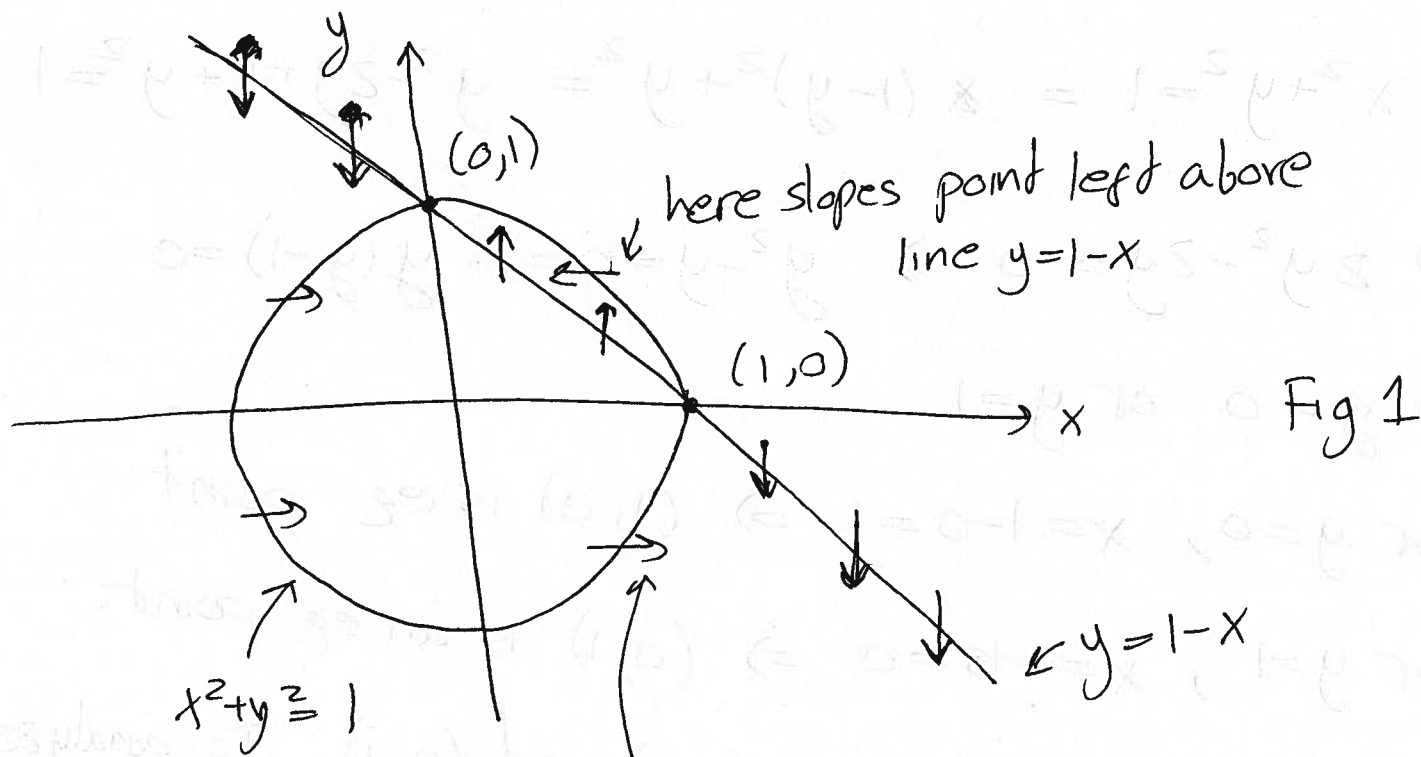 y
(0,1)
here slopes point left above
line y=1-x
(1,0)
x
Fig 1
y=1-x
x²+y²=1